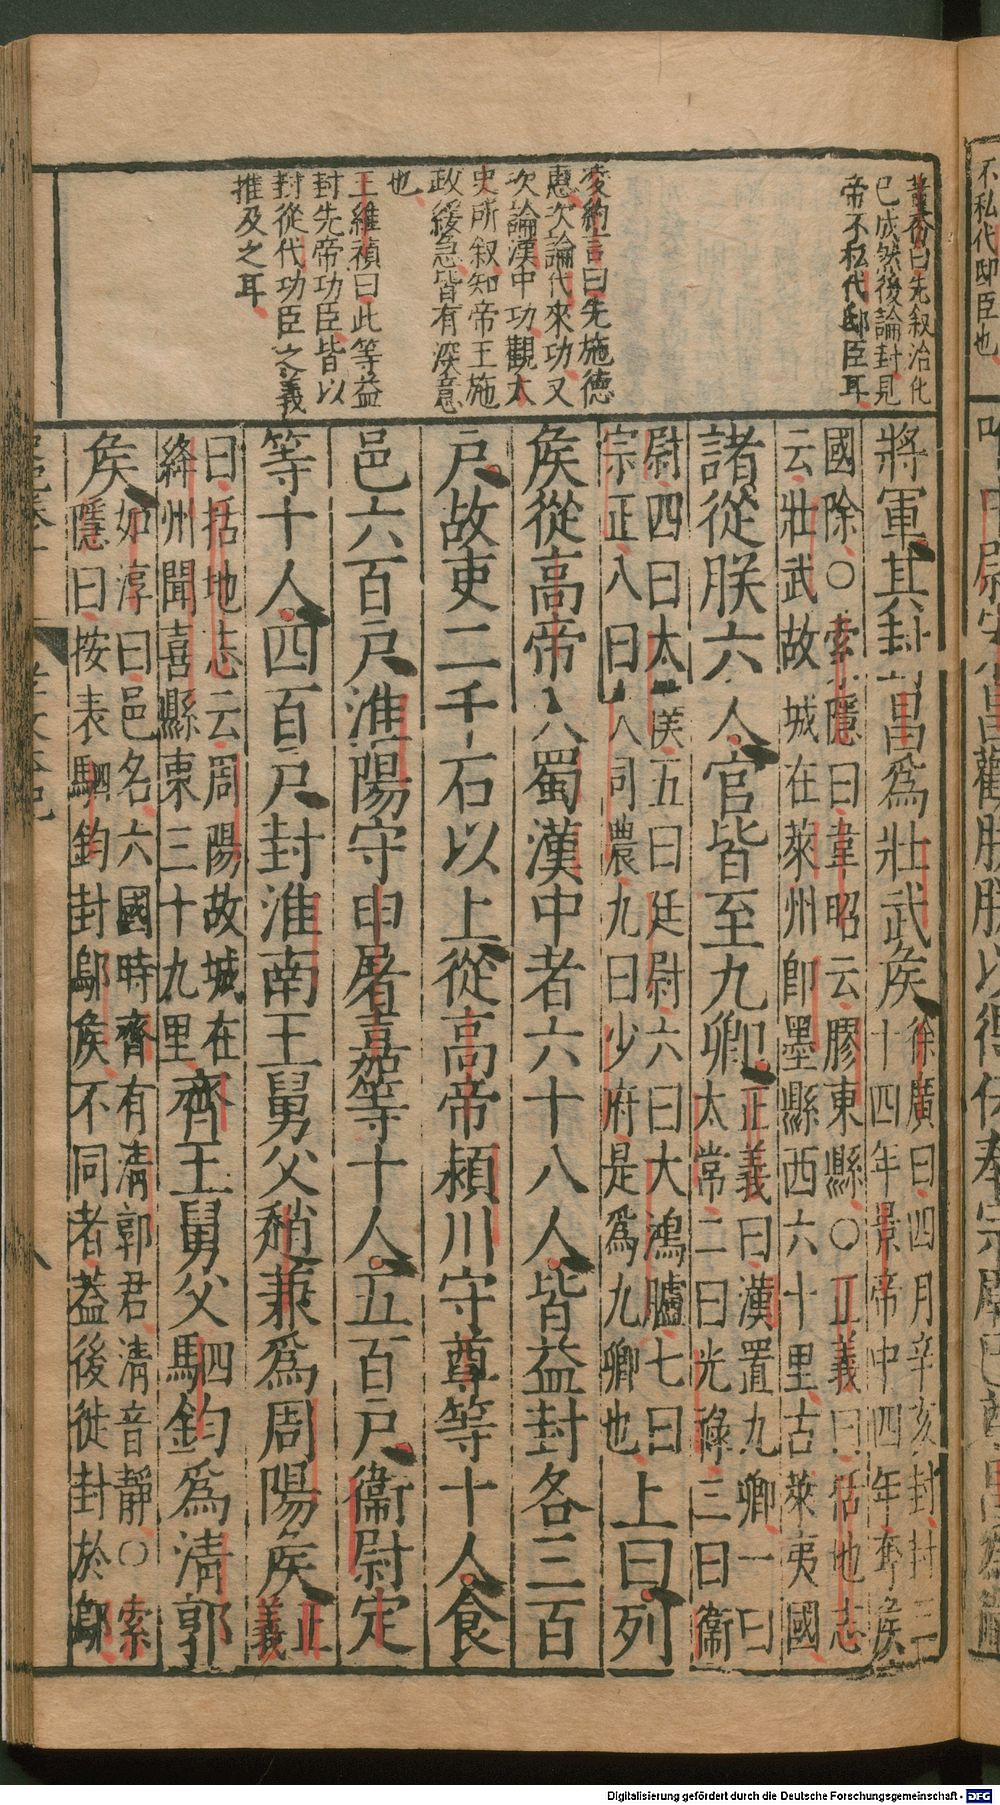 黃香曰先叙治化
已成然後論封見
帝不私代邸臣耳
凌約言曰先施德
惠次論代來功又
次論漢中功觀太
史所叙知帝王施
政緩急皆有深意
也
王維禎曰此等益
封先帝功臣皆以
封從代功臣之義
推及之耳
將軍其封昌爲壯武矦
徐廣曰四月辛亥封封三
十四年景帝中四年奪矦
國除○索隱曰韋昭云膠東縣○正義曰括地志
云壯武故城在萊州卽墨縣西六十里古萊夷國
諸從朕六人官皆至九卿
正義曰漢置九卿一曰
太常二曰光祿三曰衞
尉四曰太僕五曰廷尉六曰大鴻臚七曰
宗正八曰大司農九曰少府是爲九卿也
上曰列
矦從高帝入蜀漢中者六十八人皆益封各三百
戸故吏二千石以上從高帝潁川守尊等十人食
邑六百戸淮陽守申屠嘉等十人五百戸衞尉定
等十人四百戸封淮南王舅父趙兼爲周陽矦
正
義
曰括地志云周陽故城在
絳州聞喜縣東三十九里
齊王舅父駟鈞爲清郭
矦
如淳曰邑名六國時齊有清郭君清音靜○索
隱曰按表駟鈞封鄔矦不同者葢後徙封於鄔
不私代邸臣也
Digitalisierung gefördert durch die Deutsche Forschungsgemeinschaft - DFG